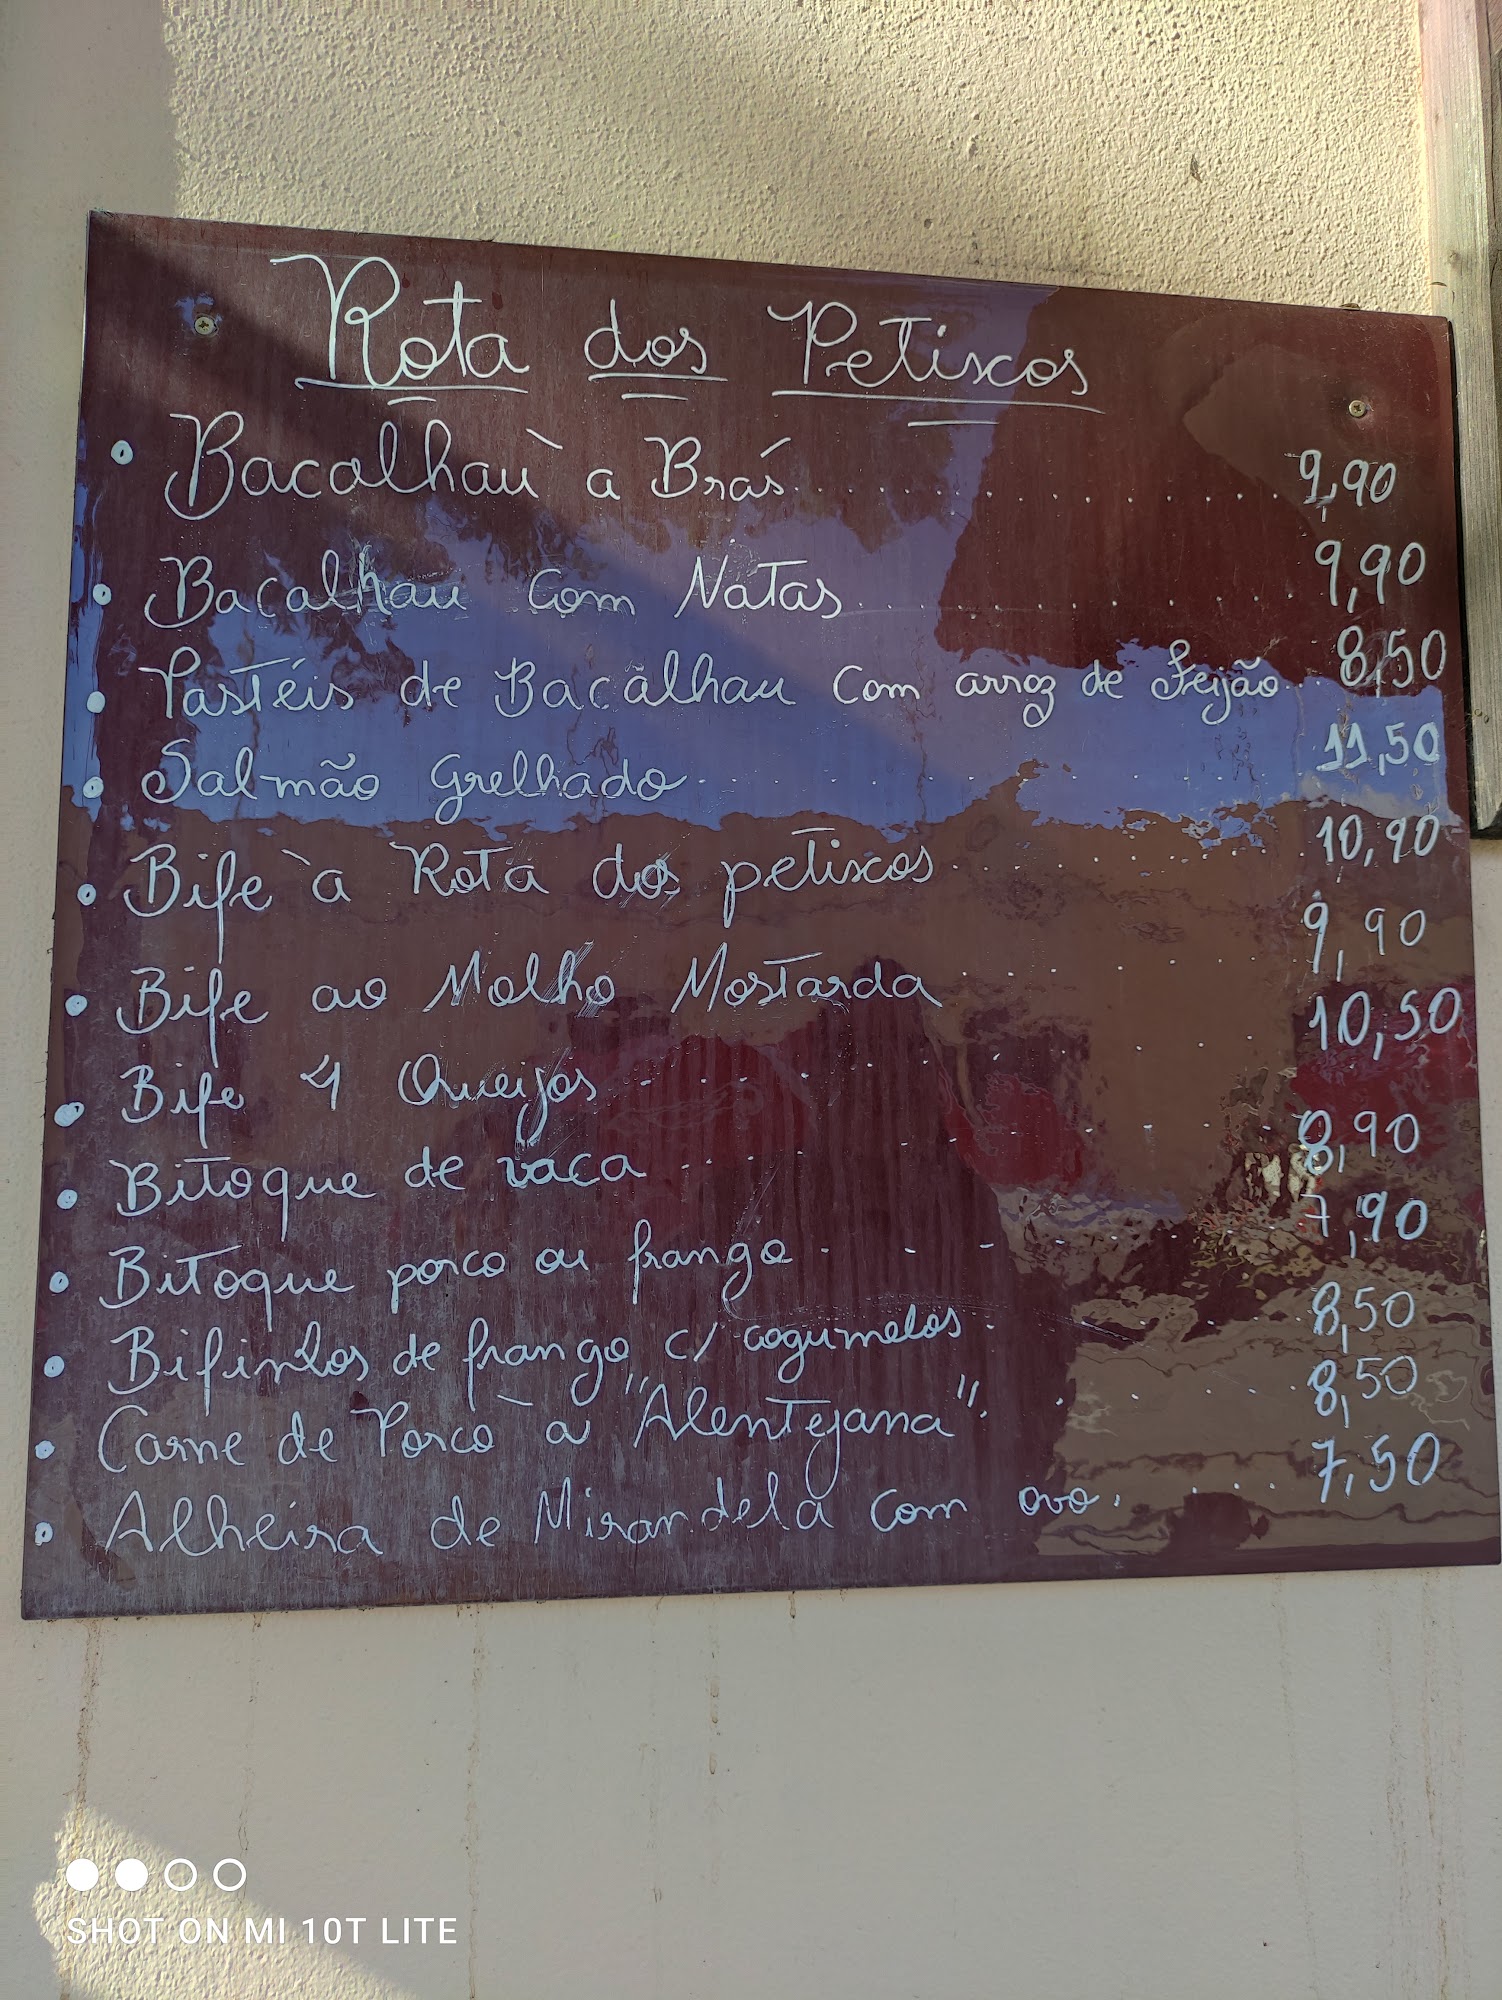 Rota dos Petiscos
• Bacalhau à Brás 9,90
• Bacalhau com Natas 9,90
• Pastéis de Bacalhau com arroz de Feijão 8,50
• Salmão Grelhado 11,50
• Bife à Rota dos petiscos 10,90
• Bife ao Molho Mostarda 9,90
• Bife 4 Queijos 10,50
• Bitoque de vaca 8,90
• Bitoque porco ou frango 7,90
• Bifinhos de frango c/ cogumelos 8,50
• Carne de Porco à "Alentejana" 8,50
• Alheira de Mirandela com ovo 7,50
SHOT ON MI 10T LITE